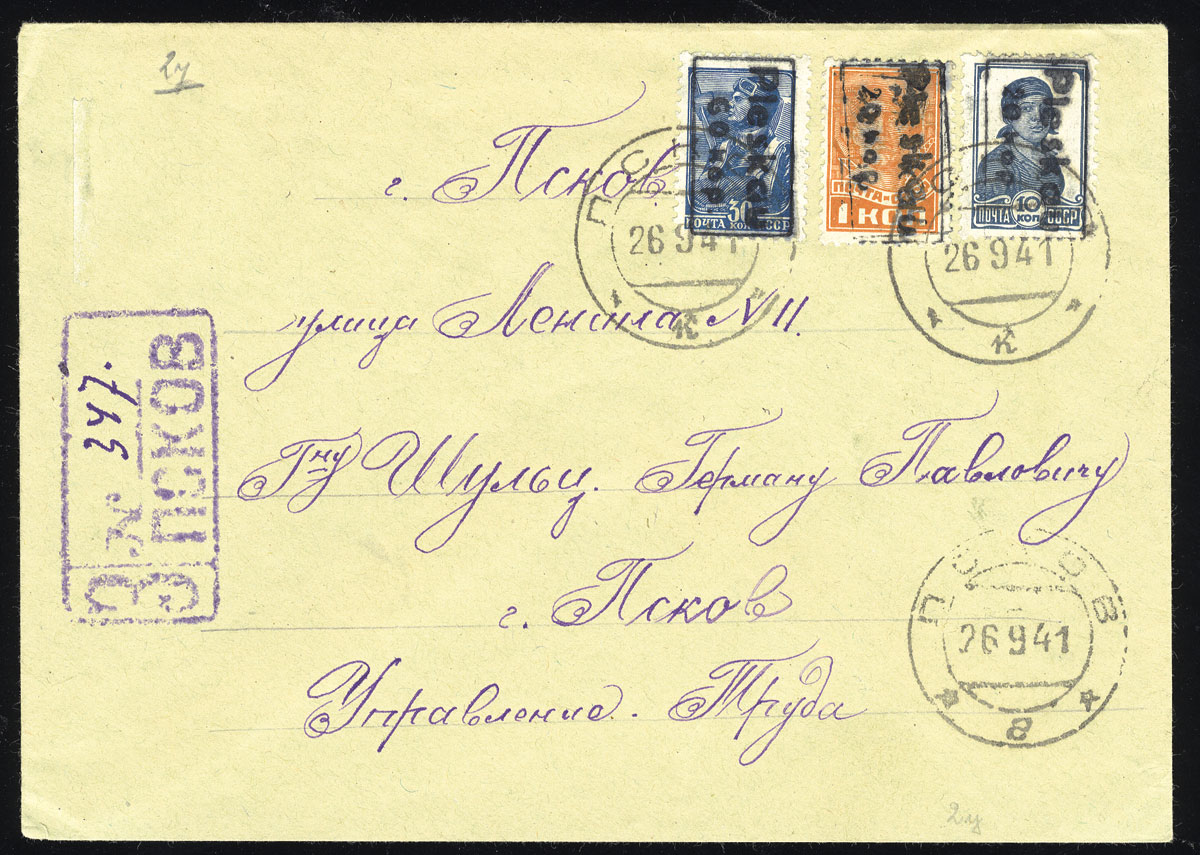 2у
Pleskau
60 коп
30
ПОЧТА КОП. СССР
Pleskau
20 коп
ПОЧТА СССР
1 КОП
Pleskau
20 коп
10
ПОЧТА КОП. СССР
26 9 41
к
26 9 41
к
г. Псков
улица Ленина N 11.
Гну Шульц. Герману Павловичу
г. Псков
Управление. Труда
З ПСКОВ
№ 347.
ПСКОВ
26 9 41
в
2у